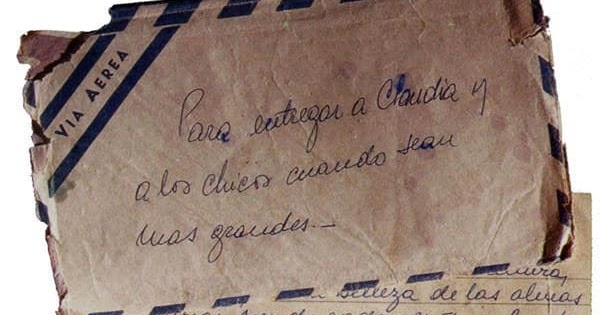 VIA AEREA
Para entregar a Claudia y
a los chicos cuando sean
mas grandes.—
de las almas